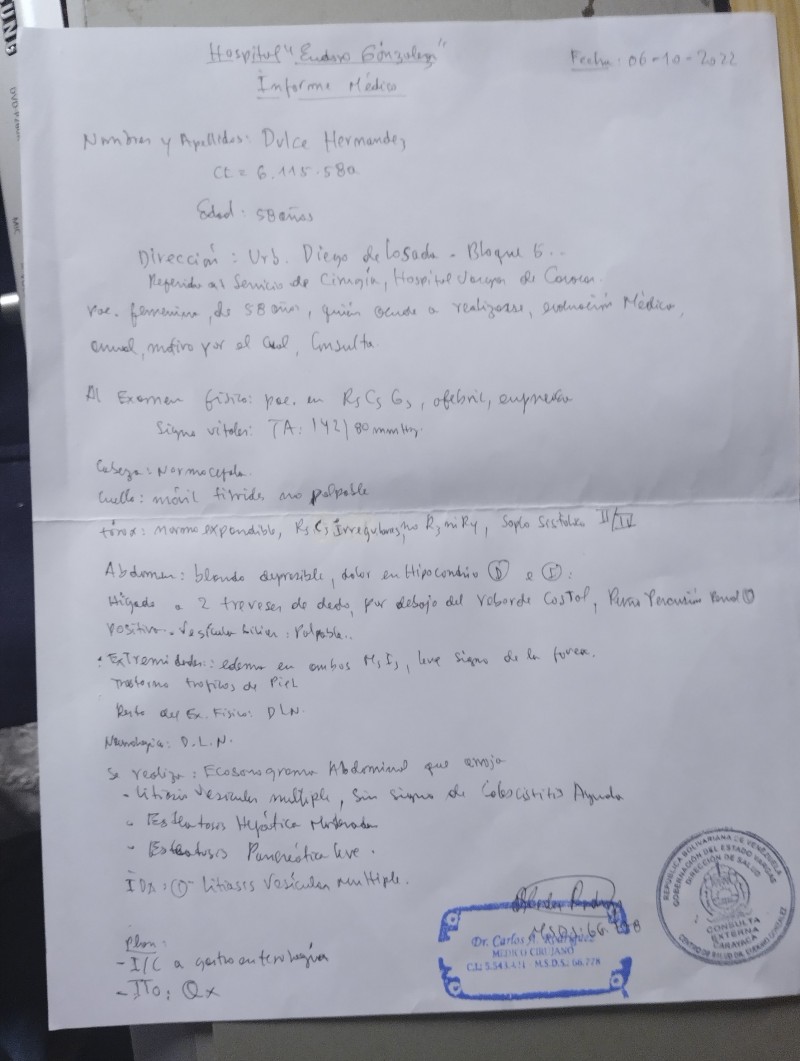 Hospital "Eudoro González"
Fecha: 06-10-2022
Informe Médico
Nombres y Apellidos: Dulce Hernandez
CI = 6.115.580
Edad: 58 años
Dirección: Urb. Diego de Losada - Bloque 5..
Referida al Servicio de Cirugía, Hospital Vargas de Caracas.
Pac. femenina, de 58 años, quién acude a realizarse, evaluación Médica,
anual, motivo por el cual, Consulta.
Al Examen físico: pac. en RsCsGs, afebril, eupneica
Signo vitales: TA: 142/80 mmHg.
Cabeza: Normocefala.
Cuello: móvil tiroides no palpable
tórax: normoexpandible, RsCs Irregulares, no R3 ni R4, Soplo Sistolico II/IV
Abdomen: blando depresible, dolor en Hipocondrio (D) e (I):
Higado a 2 traveses de dedo, por debajo del reborde Costal, Puño Percusión Renal
Positiva - Vesícula biliar: Palpable..
: Extremidades: edema en ambos MsIs, leve signo de la fovea.
Trastorno troficos de Piel
Resto del Ex. Físico: DLN.
Neurologia: D.L.N.
Se realiza: Ecosonograma Abdominal que arroja
- Litiasis Vesicular multiple, Sin signo de Colecistitis Aguda
- Esteatosis Hepática Moderada
- Esteatosis Pancreática leve.
IDx: ①- Litiasis Vesícular multiple.
Plan:
- I/C a gastroenterología
- TTo: Qx
MSDS: 66.778
Dr. Carlos A. Rodríguez
MEDICO CIRUJANO
C.I.: 5.543.431 - M.S.D.S.: 66.778
REPUBLICA BOLIVARIANA DE VENEZUELA
GOBERNACIÓN DEL ESTADO VARGAS
DIRECCIÓN DE SALUD
CONSULTA
EXTERNA
CARAYACA
CENTRO DE SALUD DR. EUDORO GONZÁLEZ